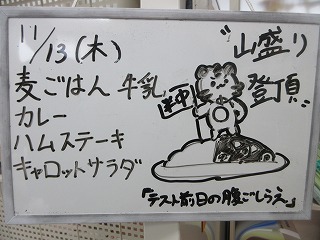 11/13(木)
麦ごはん 牛乳
カレー
ハムステーキ
キャロットサラダ
"山盛り
登頂"
「テスト前日の腹ごしらえ」